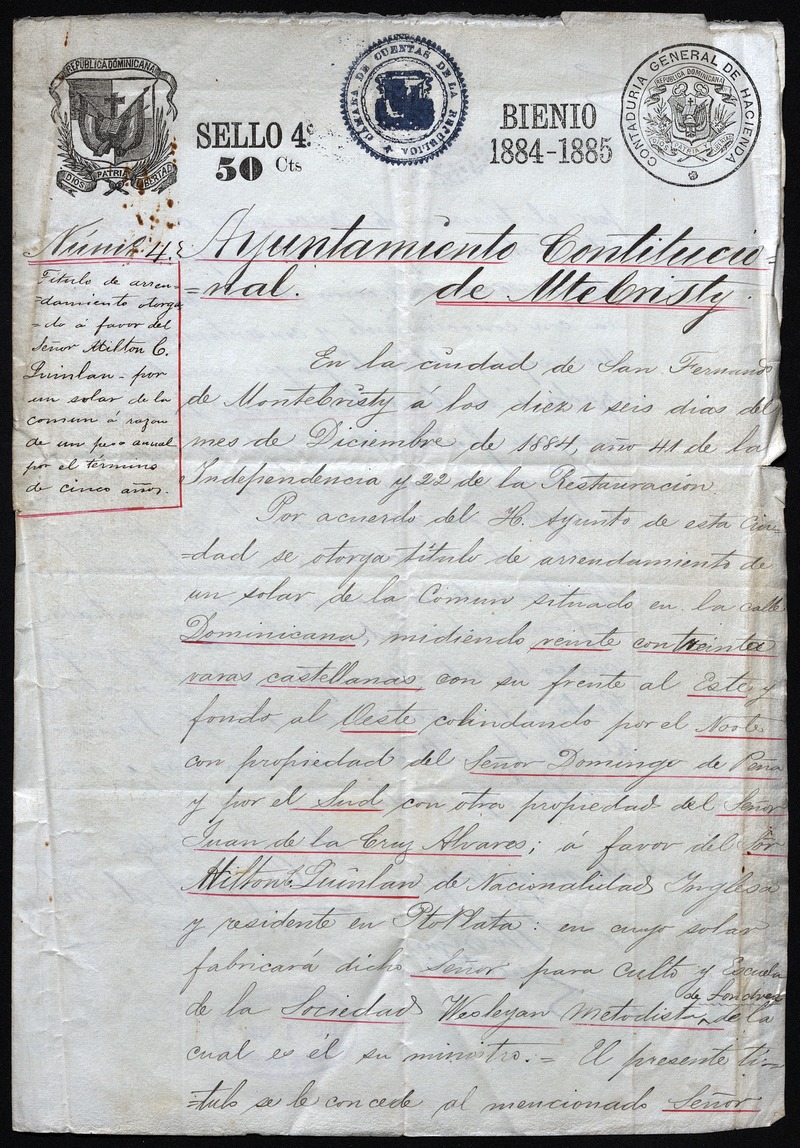 REPUBLICA DOMINICANA
DIOS PATRIA LIBERTAD
SELLO 4.º
50 Cts
CÁMARA DE CUENTAS DE LA REPUBLICA
BIENIO
1884-1885
CONTADURIA GENERAL DE HACIENDA
REPUBLICA DOMINICANA
DIOS PATRIA Y LIBERTAD
Núm. 4.
Título de arren-
=damiento otorga-
=do á favor del
Señor Milton C.
Quinlan - por
un solar de la
comun á razon
de un peso anual
por el término
de cinco años.-
Ayuntamiento Contitucio=
=nal. de MteCristy.
En la ciudad de San Fernando
de MonteCristy á los diez i seis dias del
mes de Diciembre de 1884, año 41 de la
Independencia y 22 de la Restauración.
Por acuerdo del H. Ayunto de esta Ciu-
=dad se otorga título de arrendamiento de
un solar de la Comun situado en la calle
Dominicana, midiendo veinte con treinta
varas castellanas con su frente al Este y
fondo al Oeste colindando por el Norte
con propiedad del Señor Domingo de Peña
y por el Sud con otra propiedad del Señor
Juan de la Cruz Alvares; á favor del Sor
Milton C. Quinlan de Nacionalidad Inglesa
y residente en PtoPlata: en cuyo solar
fabricará dicho Señor para Culto y Escuela
de la Sociedad Wesleyan Metodista de Londres de la
cual es él su ministro. = El presente tí=
=tulo se le concede al mencionado Señor